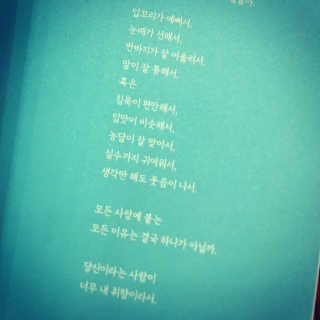 입꼬리가 예뻐서,
눈매가 선해서,
반바지가 잘 어울려서,
말이 잘 통해서,
혹은
침묵이 편안해서,
입맛이 비슷해서,
농담이 잘 맞아서,
실수까지 귀여워서,
생각만 해도 웃음이 나서.
모든 사랑에 붙는
모든 이유는 결국 하나가 아닐까.
당신이라는 사람이
너무 내 취향이라서.